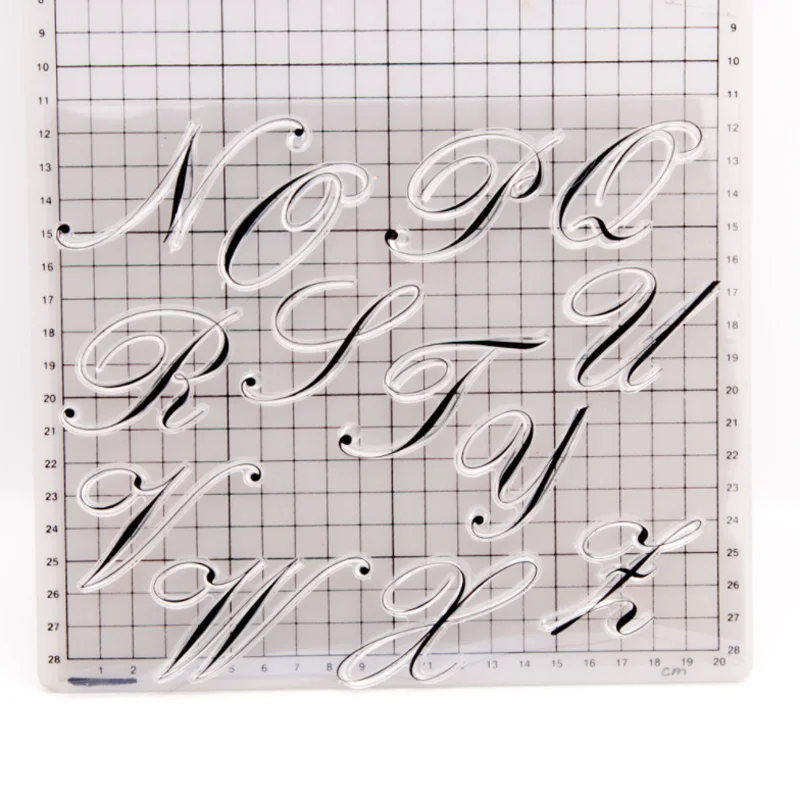 8
9 9
10 10
11 11
12 12
13 13
14 14
15 15
16 16
17 17
18 18
19 19
20 20
21 21
22 22
23 23
24 24
25 25
26 26
27 27
28 28
N O P Q
R S T U
V Y
W X Z
1 2 5 6 7 8 9 11 12 13 14 15 16 17 18 19 20
cm